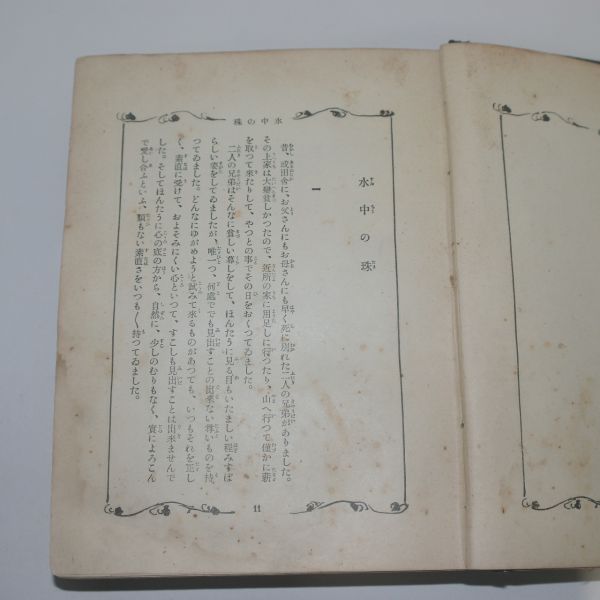 水中の珠
水中の珠
一
昔、或田舎に、お父さんにもお母さんにも早く死に別れた二人の兄弟がありました。
その上家は大變貧しかつたので、近所の家に用足しに行つたり、山へ行つて僅かに薪
を取つて來たりして、やつとの事でその日をおくつてゐました。
二人の兄弟はそんなに貧しい暮しをして、ほんたうに見る目もいたましい程みすぼ
らしい姿をしてゐましたが、唯一つ、何處でも見出すことの出來ない尊いものを持
つてゐました。どんなにゆがめようと試みて來るものがあつても、いつもそれを正し
く、素直に受けて、およそみにくい心といつて、すこしも見出すことは出來ませんで
した。そしてほんたうに心の底の方から、自然に、少しのむりもなく、實によろこん
で愛し合ふといふ、類もない素直さをいつも〱持つてゐました。
11